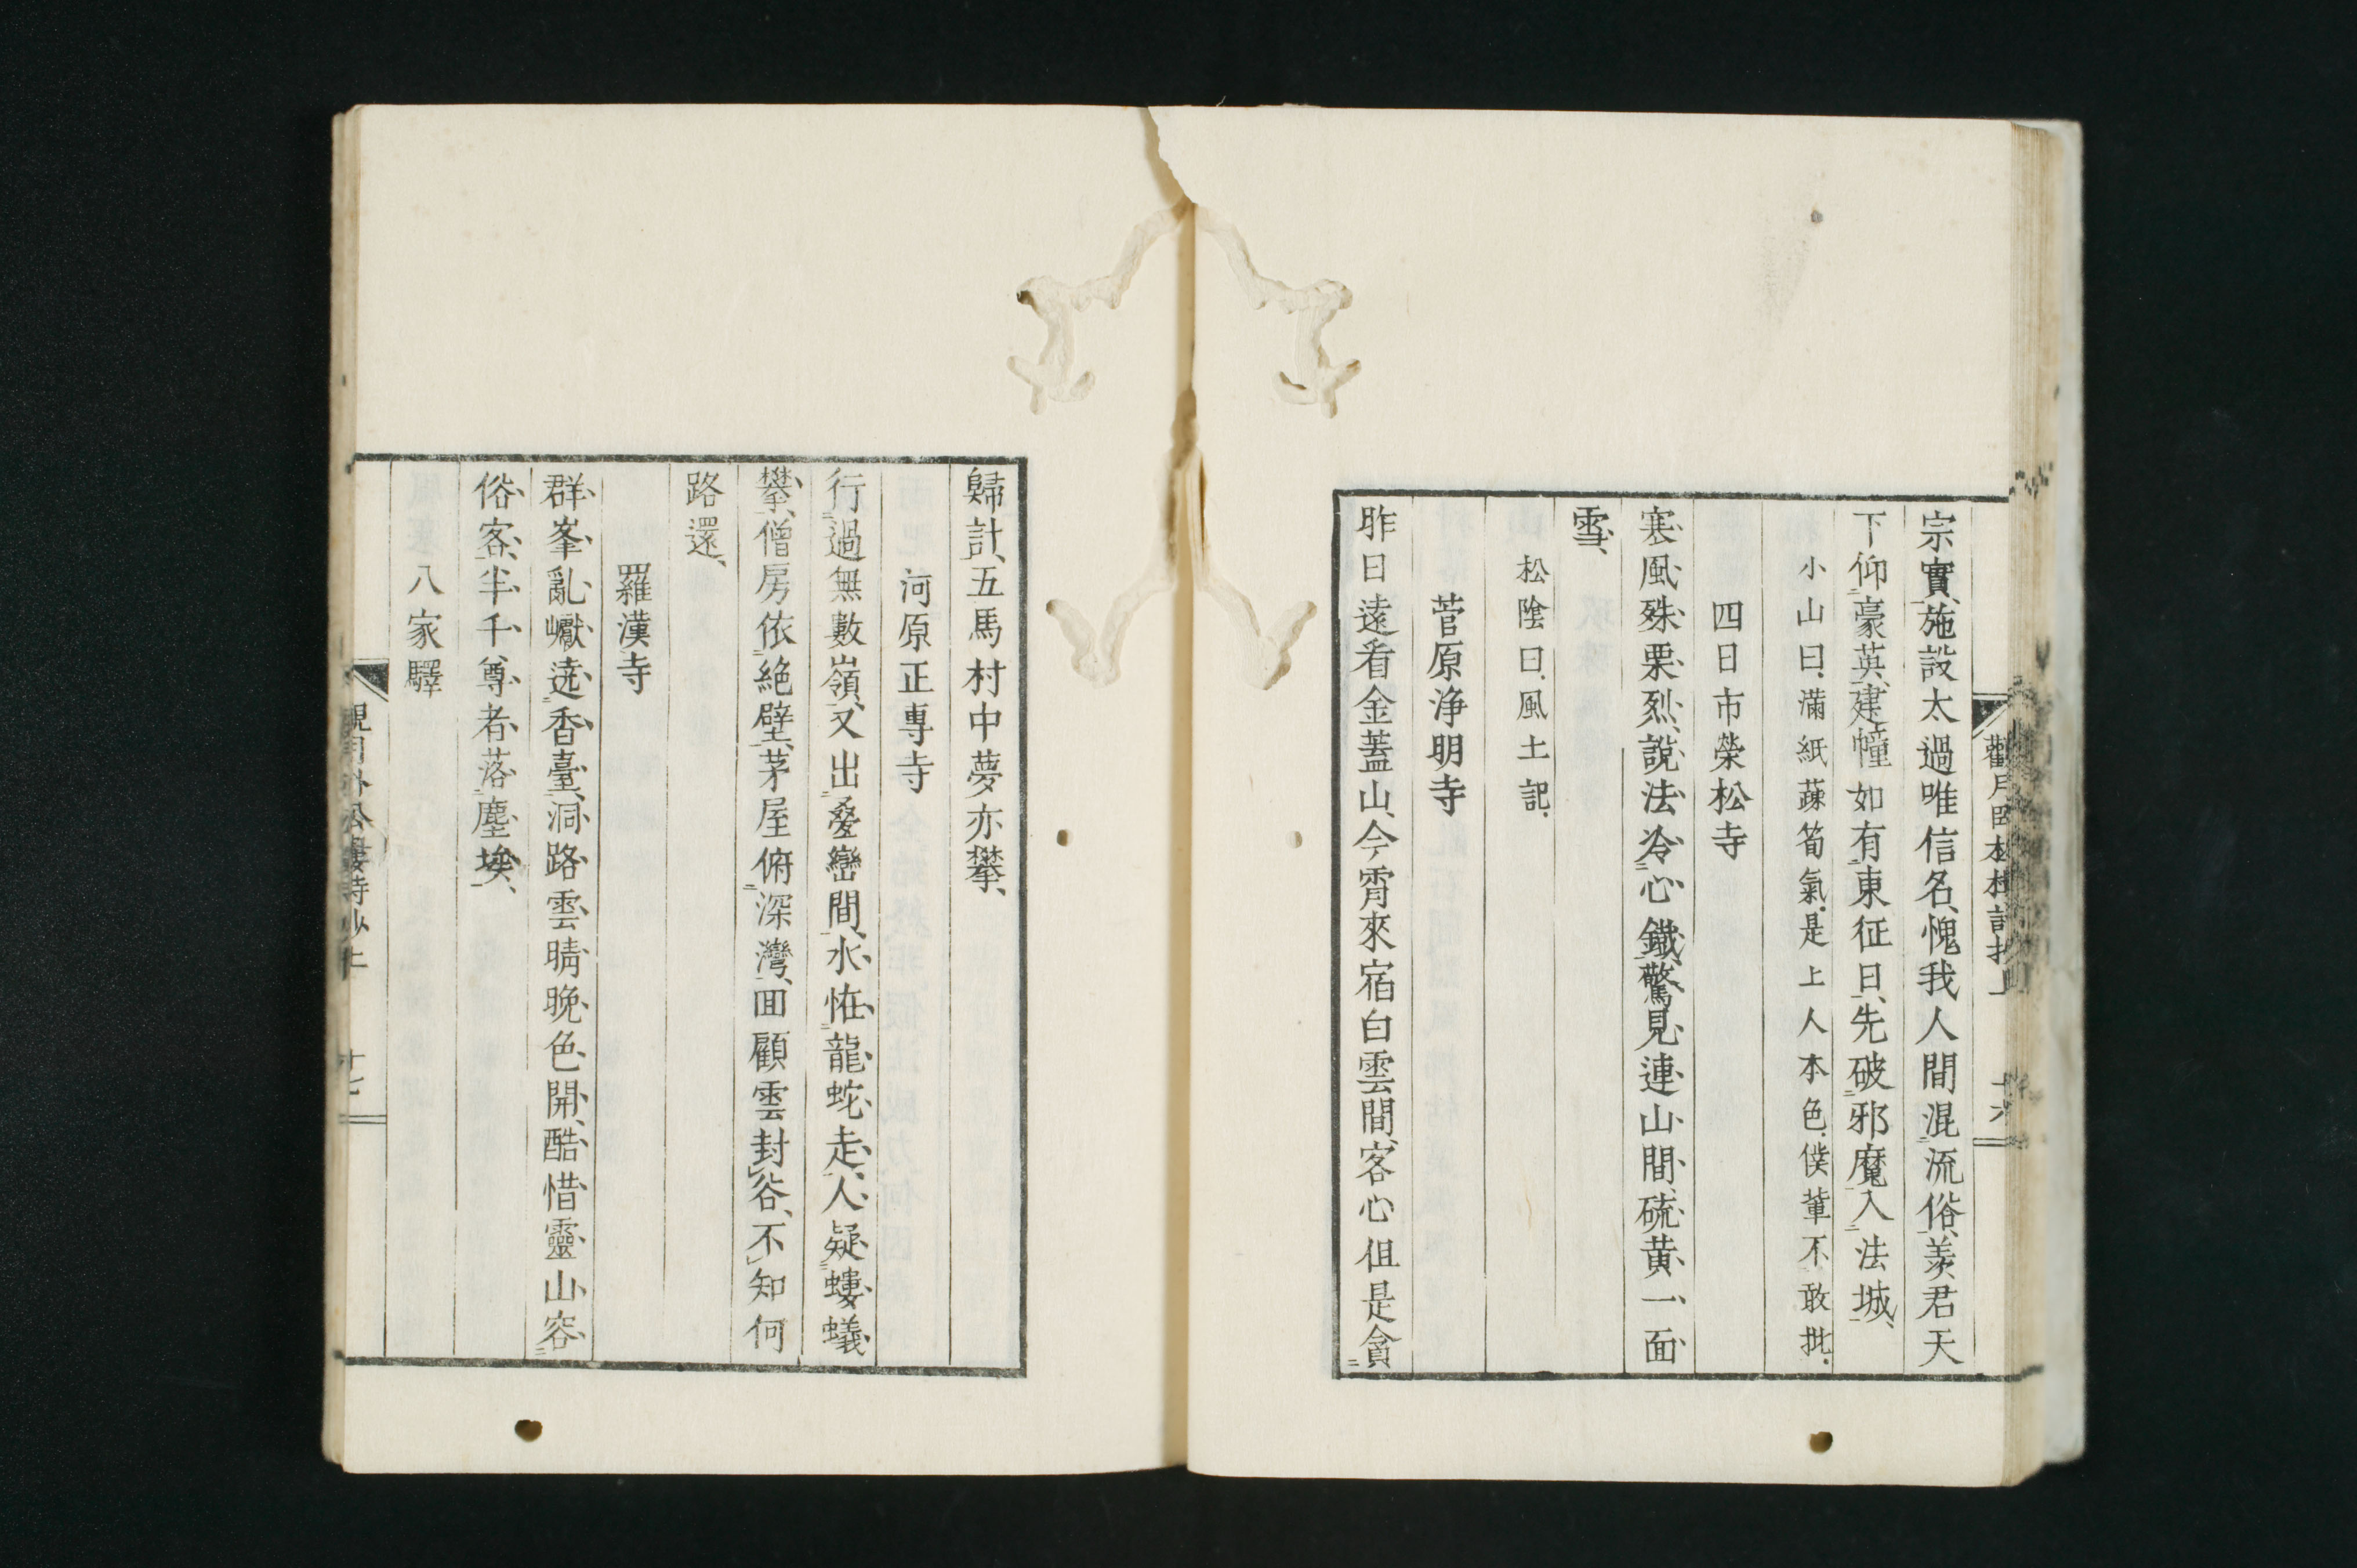 宗實、施設太過唯信名、愧我人間混流俗、羨君天
下仰豪英、建幢如有東征日、先破邪魔入法城、
小山曰、滿紙蔬筍氣、是上人本色、僕輩不敢批、
四日市榮松寺
寒風殊栗烈、說法冷心鐵、驚見連山間、硫黃一面
雪、
松陰曰、風土記、
菅原淨明寺
昨日遠看金蓋山、今宵來宿白雲間、客心但是貪
歸計、五馬村中夢亦攀、
河原正專寺
行過無數嶺、又出疊巒間、水恠龍蛇走、人疑螻蟻
攀、僧房依絶壁、茅屋俯深灣、囬顧雲封谷、不知何
路還、
羅漢寺
群峯亂巘遶香臺、洞路雲晴晩色開、酷惜靈山容
俗客、半千尊者落塵埃、
八家驛
十七